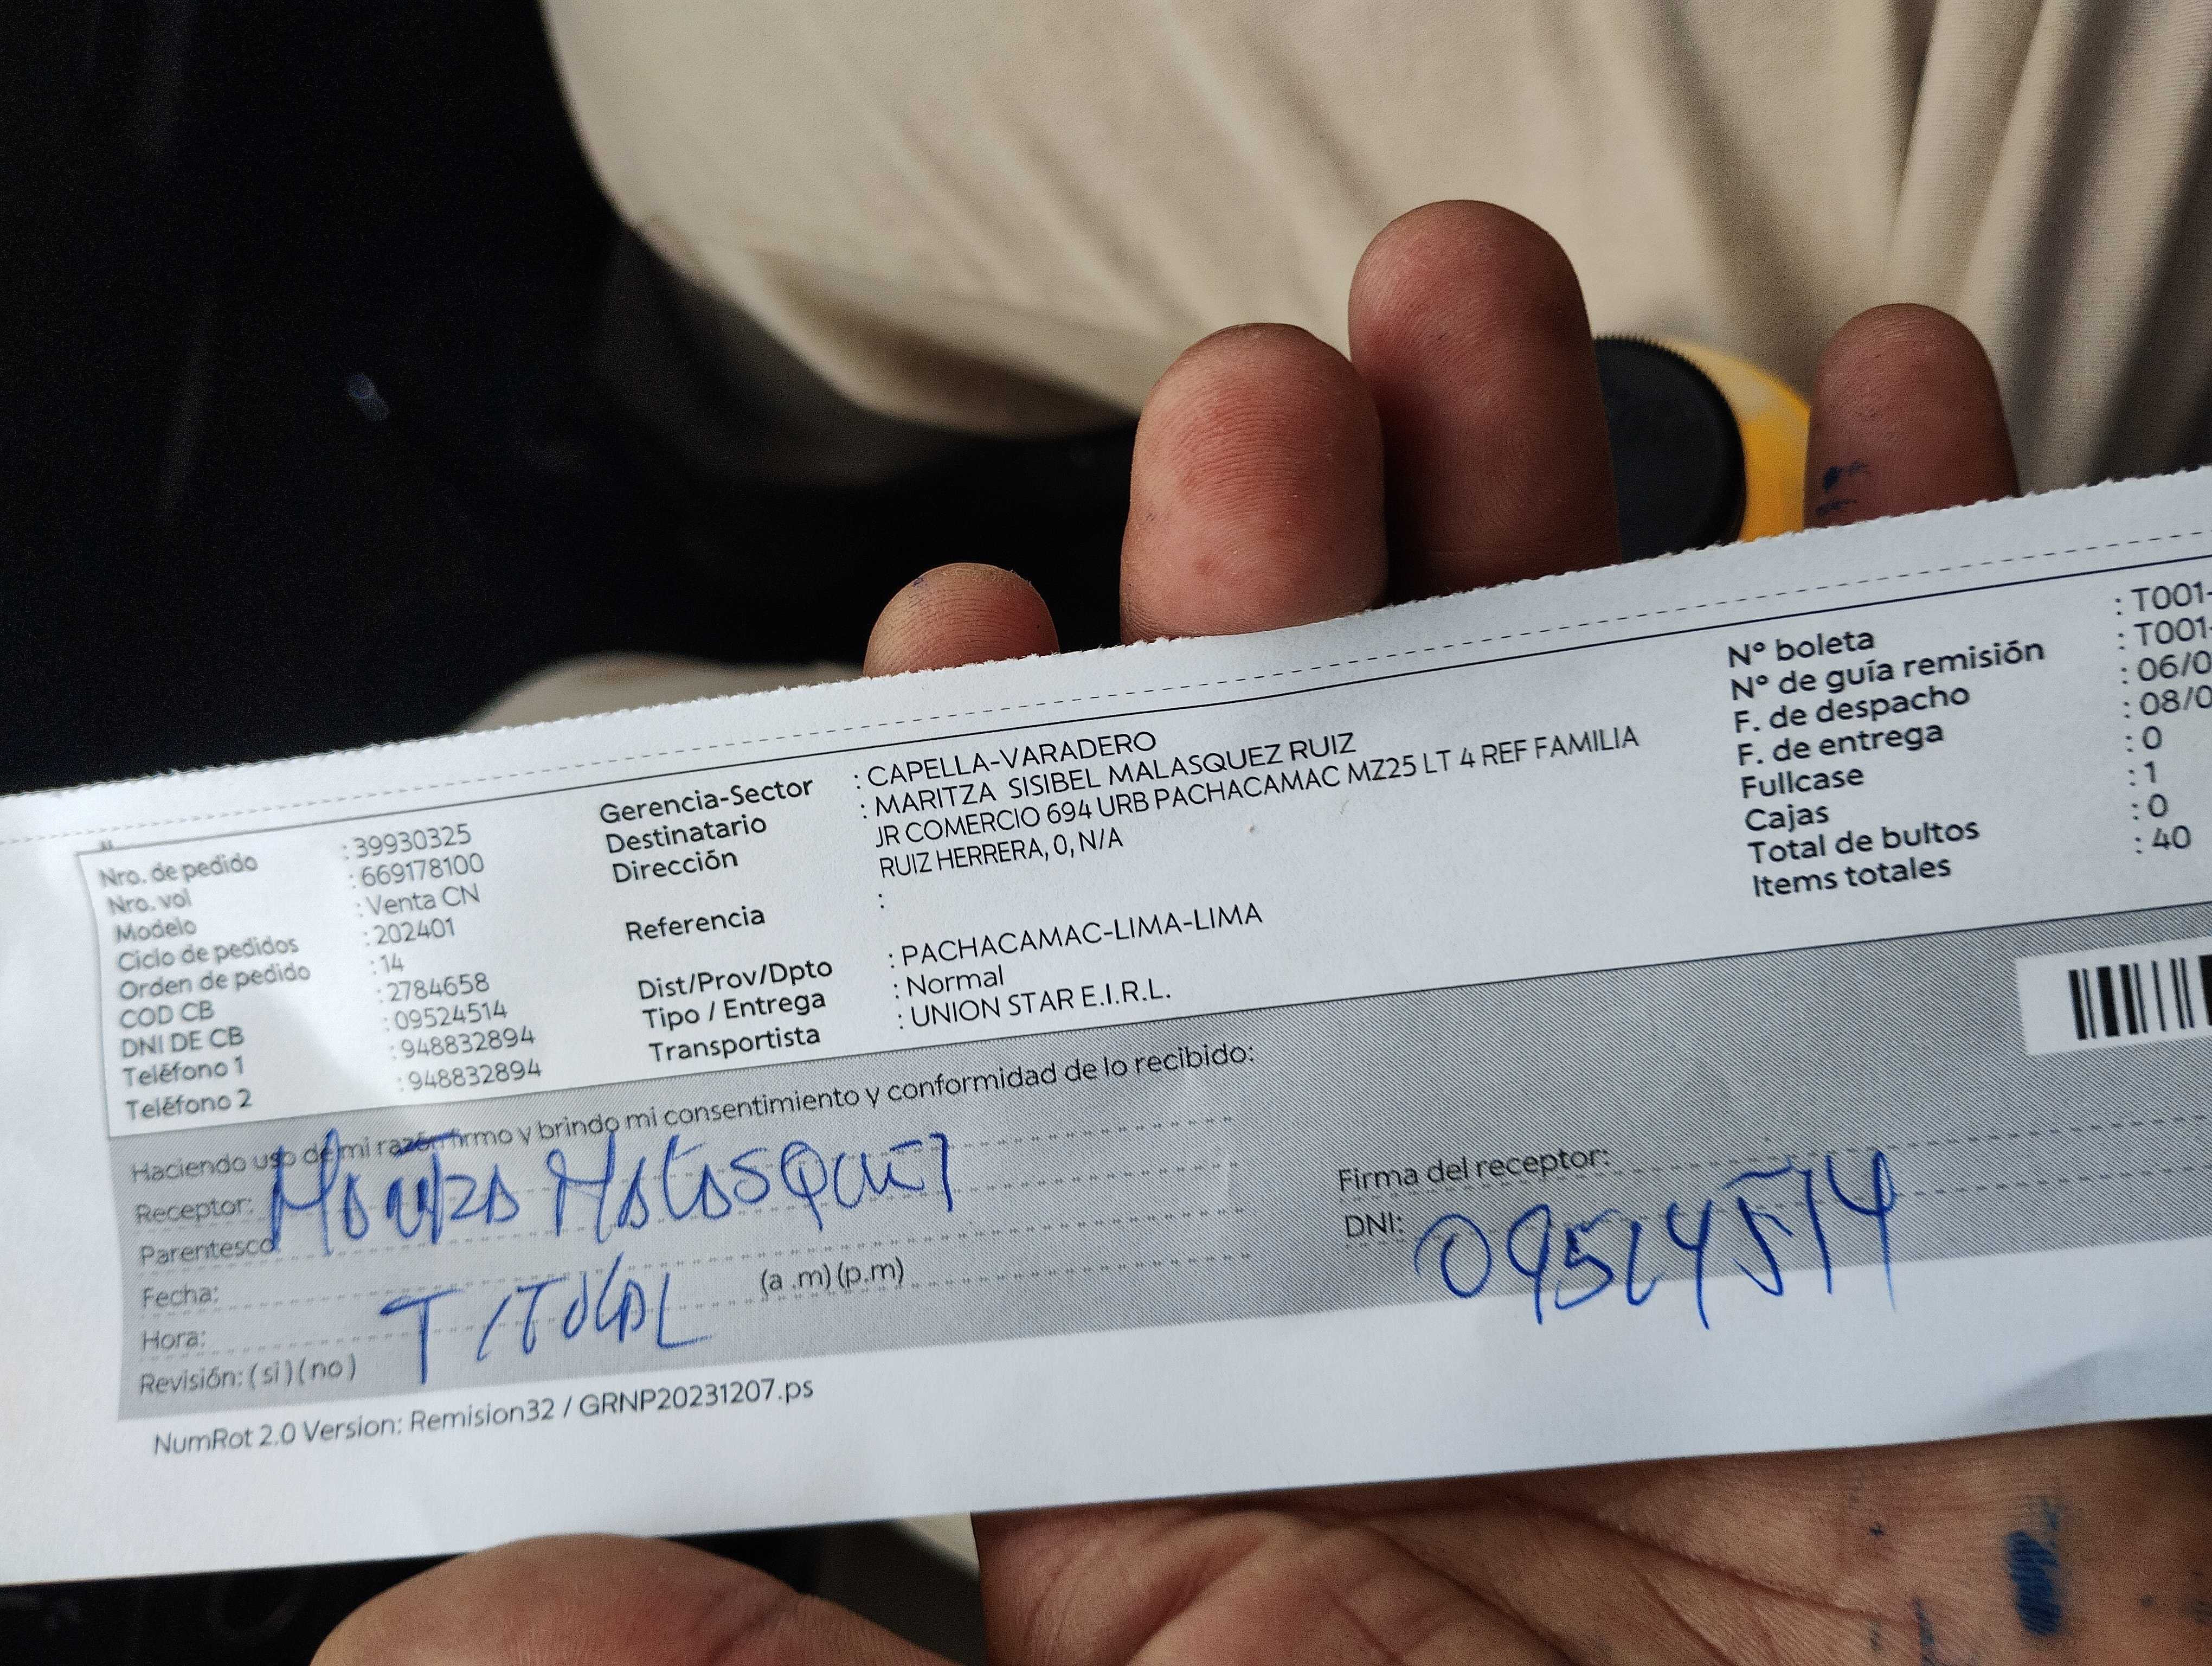 Nro. de pedido : 39930325
Nro. vol : 669178100
Modelo : Venta CN
Ciclo de pedidos : 202401
Orden de pedido : 14
COD CB : 2784658
DNI DE CB : 09524514
Teléfono 1 : 948832894
Teléfono 2 : 948832894
Gerencia-Sector : CAPELLA-VARADERO
Destinatario : MARITZA SISIBEL MALASQUEZ RUIZ
Dirección JR COMERCIO 694 URB PACHACAMAC MZ25 LT 4 REF FAMILIA
RUIZ HERRERA, 0, N/A
Referencia :
Dist/Prov/Dpto : PACHACAMAC-LIMA-LIMA
Tipo / Entrega : Normal
Transportista : UNION STAR E.I.R.L.
N° boleta : T001-
N° de guía remisión : T001-
F. de despacho : 06/0
F. de entrega : 08/0
Fullcase : 0
Cajas : 1
Total de bultos : 0
Items totales : 40
Haciendo uso de mi razón firmo y brindo mi consentimiento y conformidad de lo recibido:
Receptor: Maritza Malasquez
Parentesco
Fecha:
Hora: (a .m) (p.m)
T/Total
Revisión: ( si ) ( no )
Firma del receptor:
DNI: 09524514
NumRot 2.0 Version: Remision32 / GRNP20231207.ps